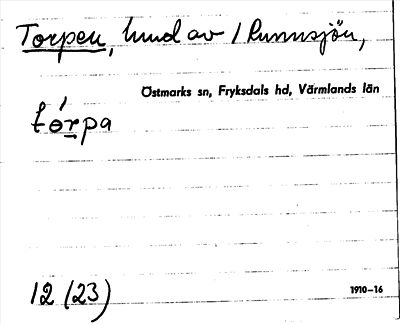 Torpen, hmd av / Runnsjön,
Östmarks sn, Fryksdals hd, Värmlands län
tórpa
12 (23)
1910–16